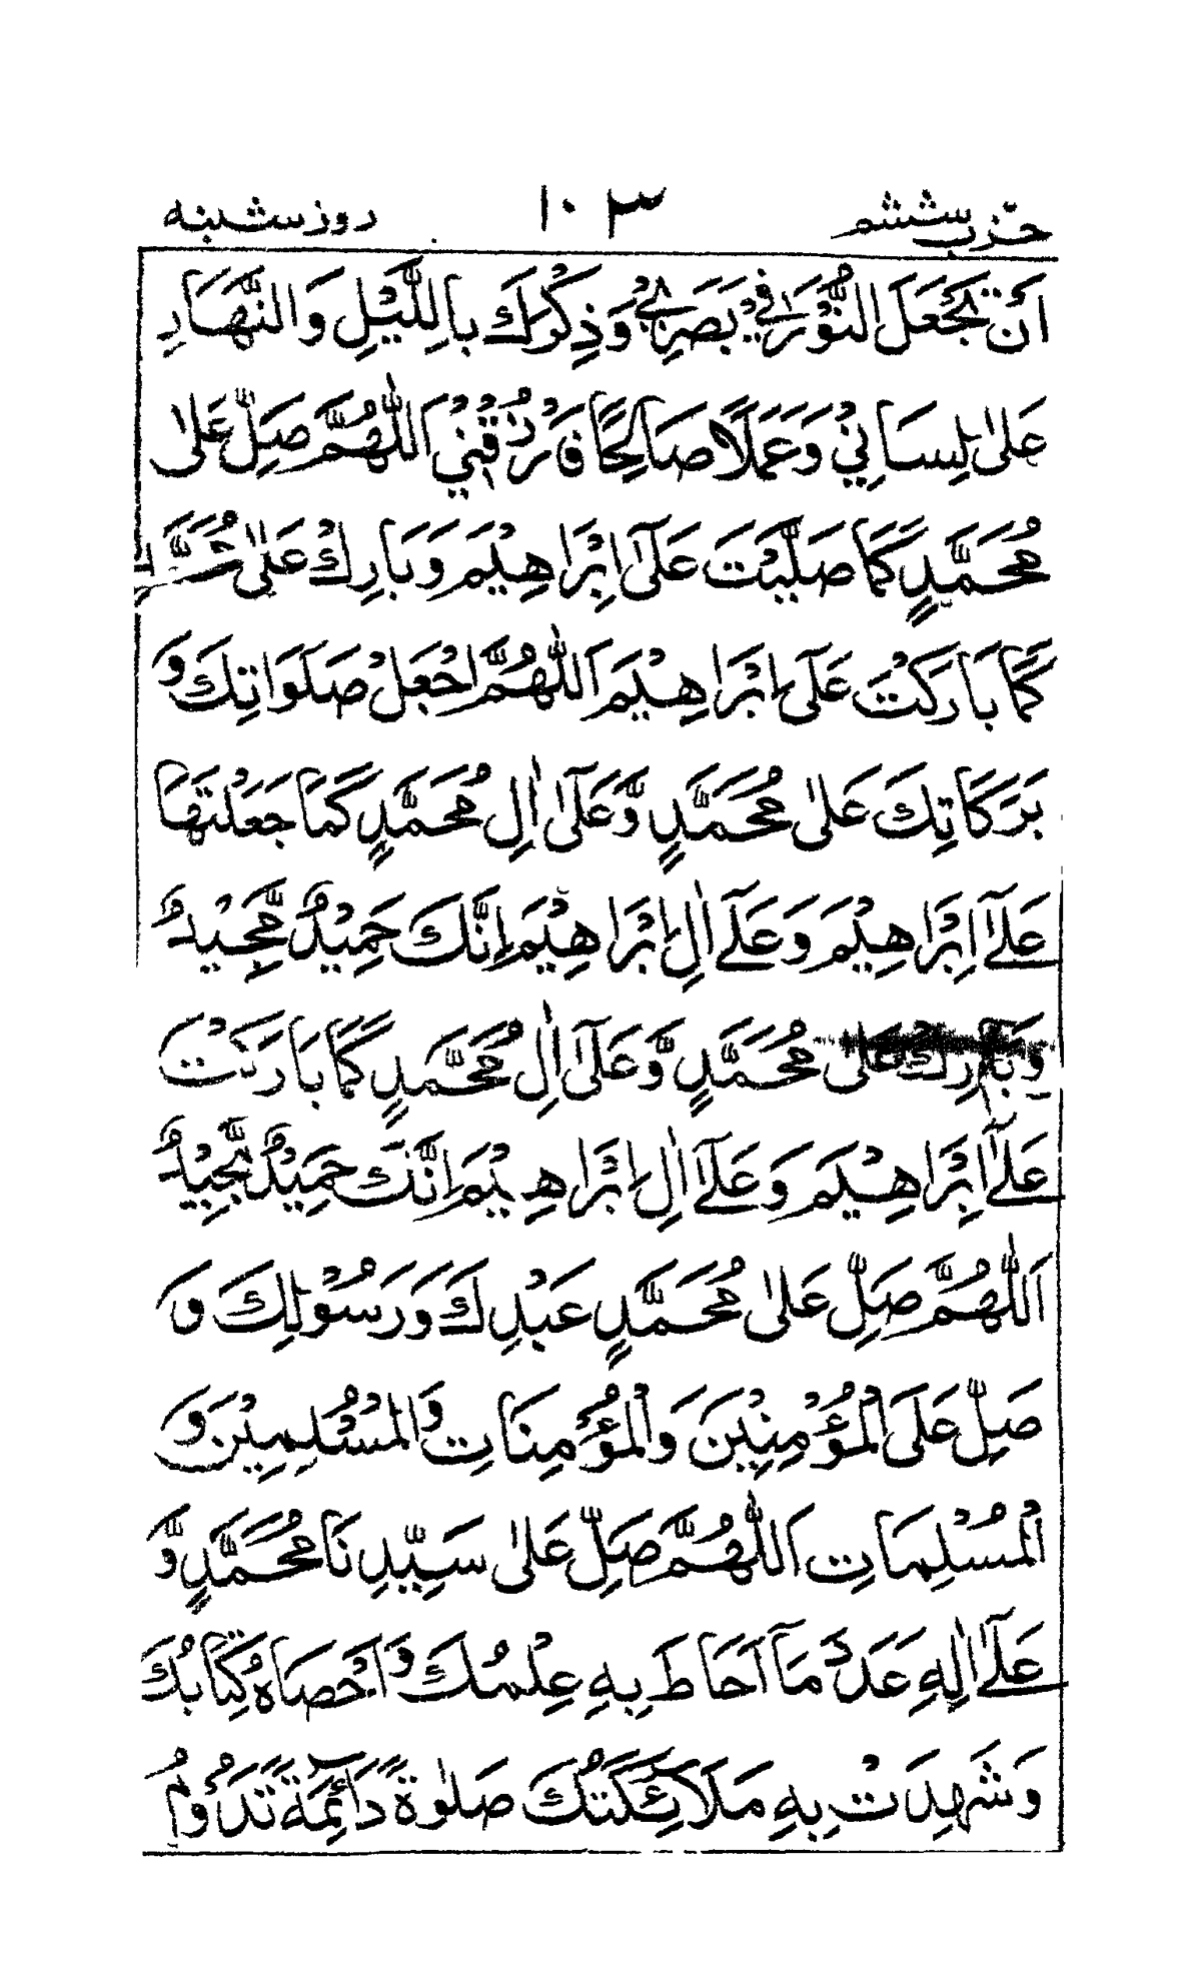 حزب ششم ١٠٣ روز شنبه
اَنْ تَجْعَلَ النُّوْرَ فِيْ بَصَرِيْ وَذِكْرَكَ بِاللَّيْلِ وَالنَّهَارِ
عَلٰى لِسَانِيْ وَعَمَلًا صَالِحًا فَارْزُقْنِيْ اَللّٰهُمَّ صَلِّ عَلٰى
مُحَمَّدٍ كَمَا صَلَّيْتَ عَلٰٓى اِبْرَاهِيْمَ وَبَارِكْ عَلٰى مُحَمَّدٍ
كَمَا بَارَكْتَ عَلٰٓى اِبْرَاهِيْمَ اَللّٰهُمَّ اجْعَلْ صَلَوَاتِكَ وَ
بَرَكَاتِكَ عَلٰى مُحَمَّدٍ وَّعَلٰٓى اٰلِ مُحَمَّدٍ كَمَا جَعَلْتَهَا
عَلٰٓى اِبْرَاهِيْمَ وَعَلٰٓى اٰلِ اِبْرَاهِيْمَ اِنَّكَ حَمِيْدٌ مَّجِيْدٌ
وَبَارِكْ عَلٰى مُحَمَّدٍ وَّعَلٰٓى اٰلِ مُحَمَّدٍ كَمَا بَارَكْتَ
عَلٰٓى اِبْرَاهِيْمَ وَعَلٰٓى اٰلِ اِبْرَاهِيْمَ اِنَّكَ حَمِيْدٌ مَّجِيْدٌ
اَللّٰهُمَّ صَلِّ عَلٰى مُحَمَّدٍ عَبْدِكَ وَرَسُوْلِكَ وَ
صَلِّ عَلَى الْمُؤْمِنِيْنَ وَالْمُؤْمِنَاتِ وَالْمُسْلِمِيْنَ وَ
الْمُسْلِمَاتِ اَللّٰهُمَّ صَلِّ عَلٰى سَيِّدِنَا مُحَمَّدٍ وَّ
عَلٰٓى اٰلِهٖ عَدَدَ مَآ اَحَاطَ بِهٖ عِلْمُكَ وَاَحْصَاهُ كِتَابُكَ
وَشَهِدَتْ بِهٖ مَلَآئِكَتُكَ صَلٰوةً دَآئِمَةً تَدُوْمُ